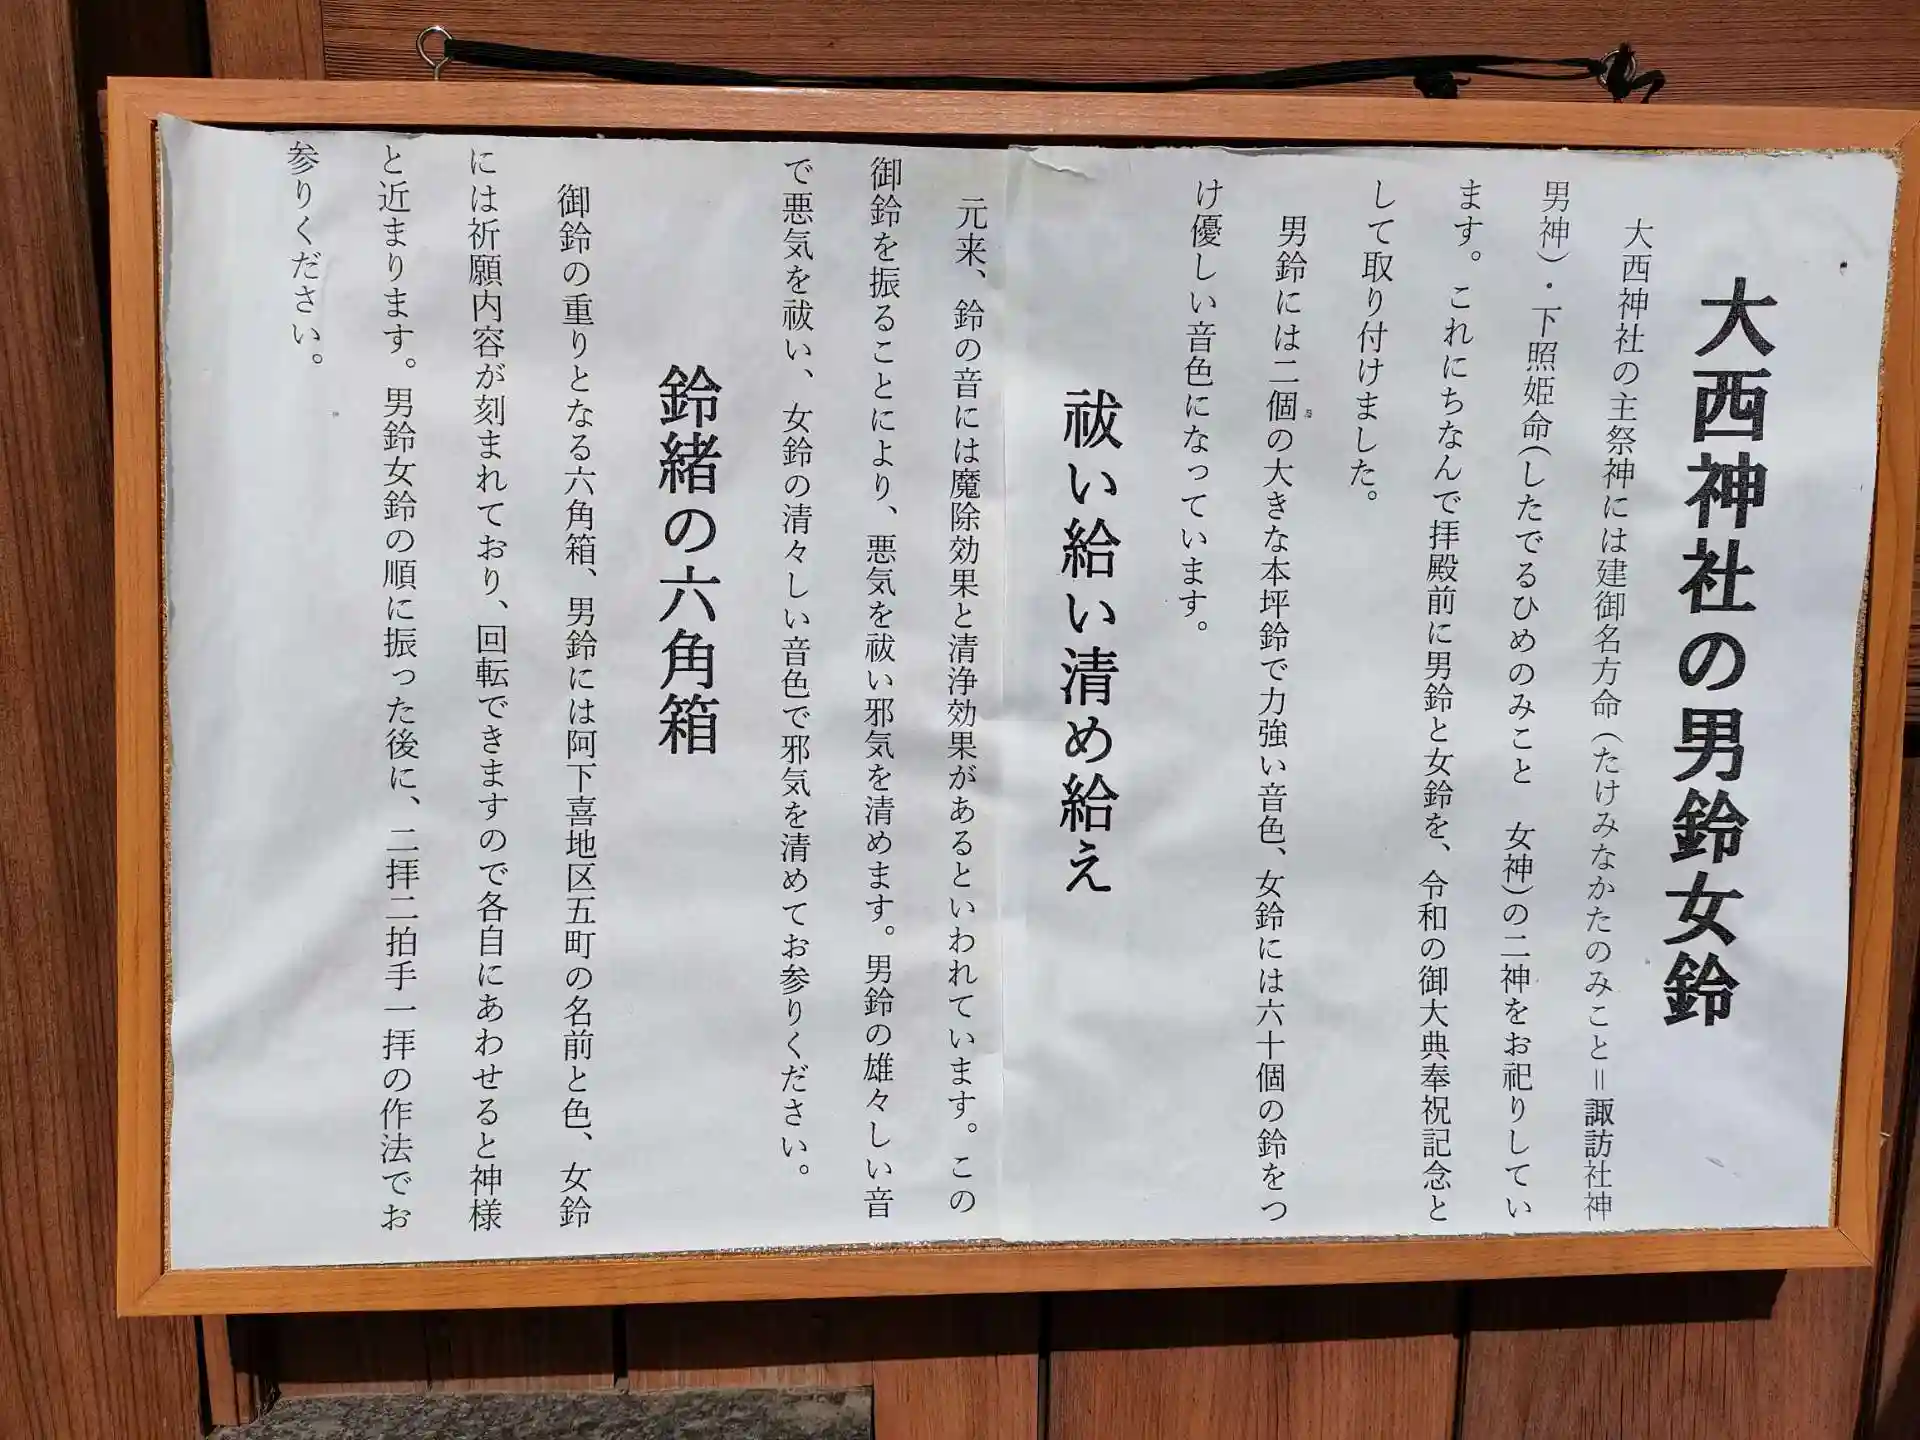 大西神社の男鈴女鈴
大西神社の主祭神には建御名方命（たけみなかたのみこと＝諏訪社神
男神）・下照姫命（したでるひめのみこと　女神）の二神をお祀りしてい
ます。これにちなんで拝殿前に男鈴と女鈴を、令和の御大典奉祝記念と
して取り付けました。
男鈴には二個の大きな本坪鈴で力強い音色、女鈴には六十個の鈴をつ
け優しい音色になっています。
祓い給い清め給え
元来、鈴の音には魔除効果と清浄効果があるといわれています。この
御鈴を振ることにより、悪気を祓い邪気を清めます。男鈴の雄々しい音
で悪気を祓い、女鈴の清々しい音色で邪気を清めてお参りください。
鈴緒の六角箱
御鈴の重りとなる六角箱、男鈴には阿下喜地区五町の名前と色、女鈴
には祈願内容が刻まれており、回転できますので各自にあわせると神様
と近まります。男鈴女鈴の順に振った後に、二拝二拍手一拝の作法でお
参りください。